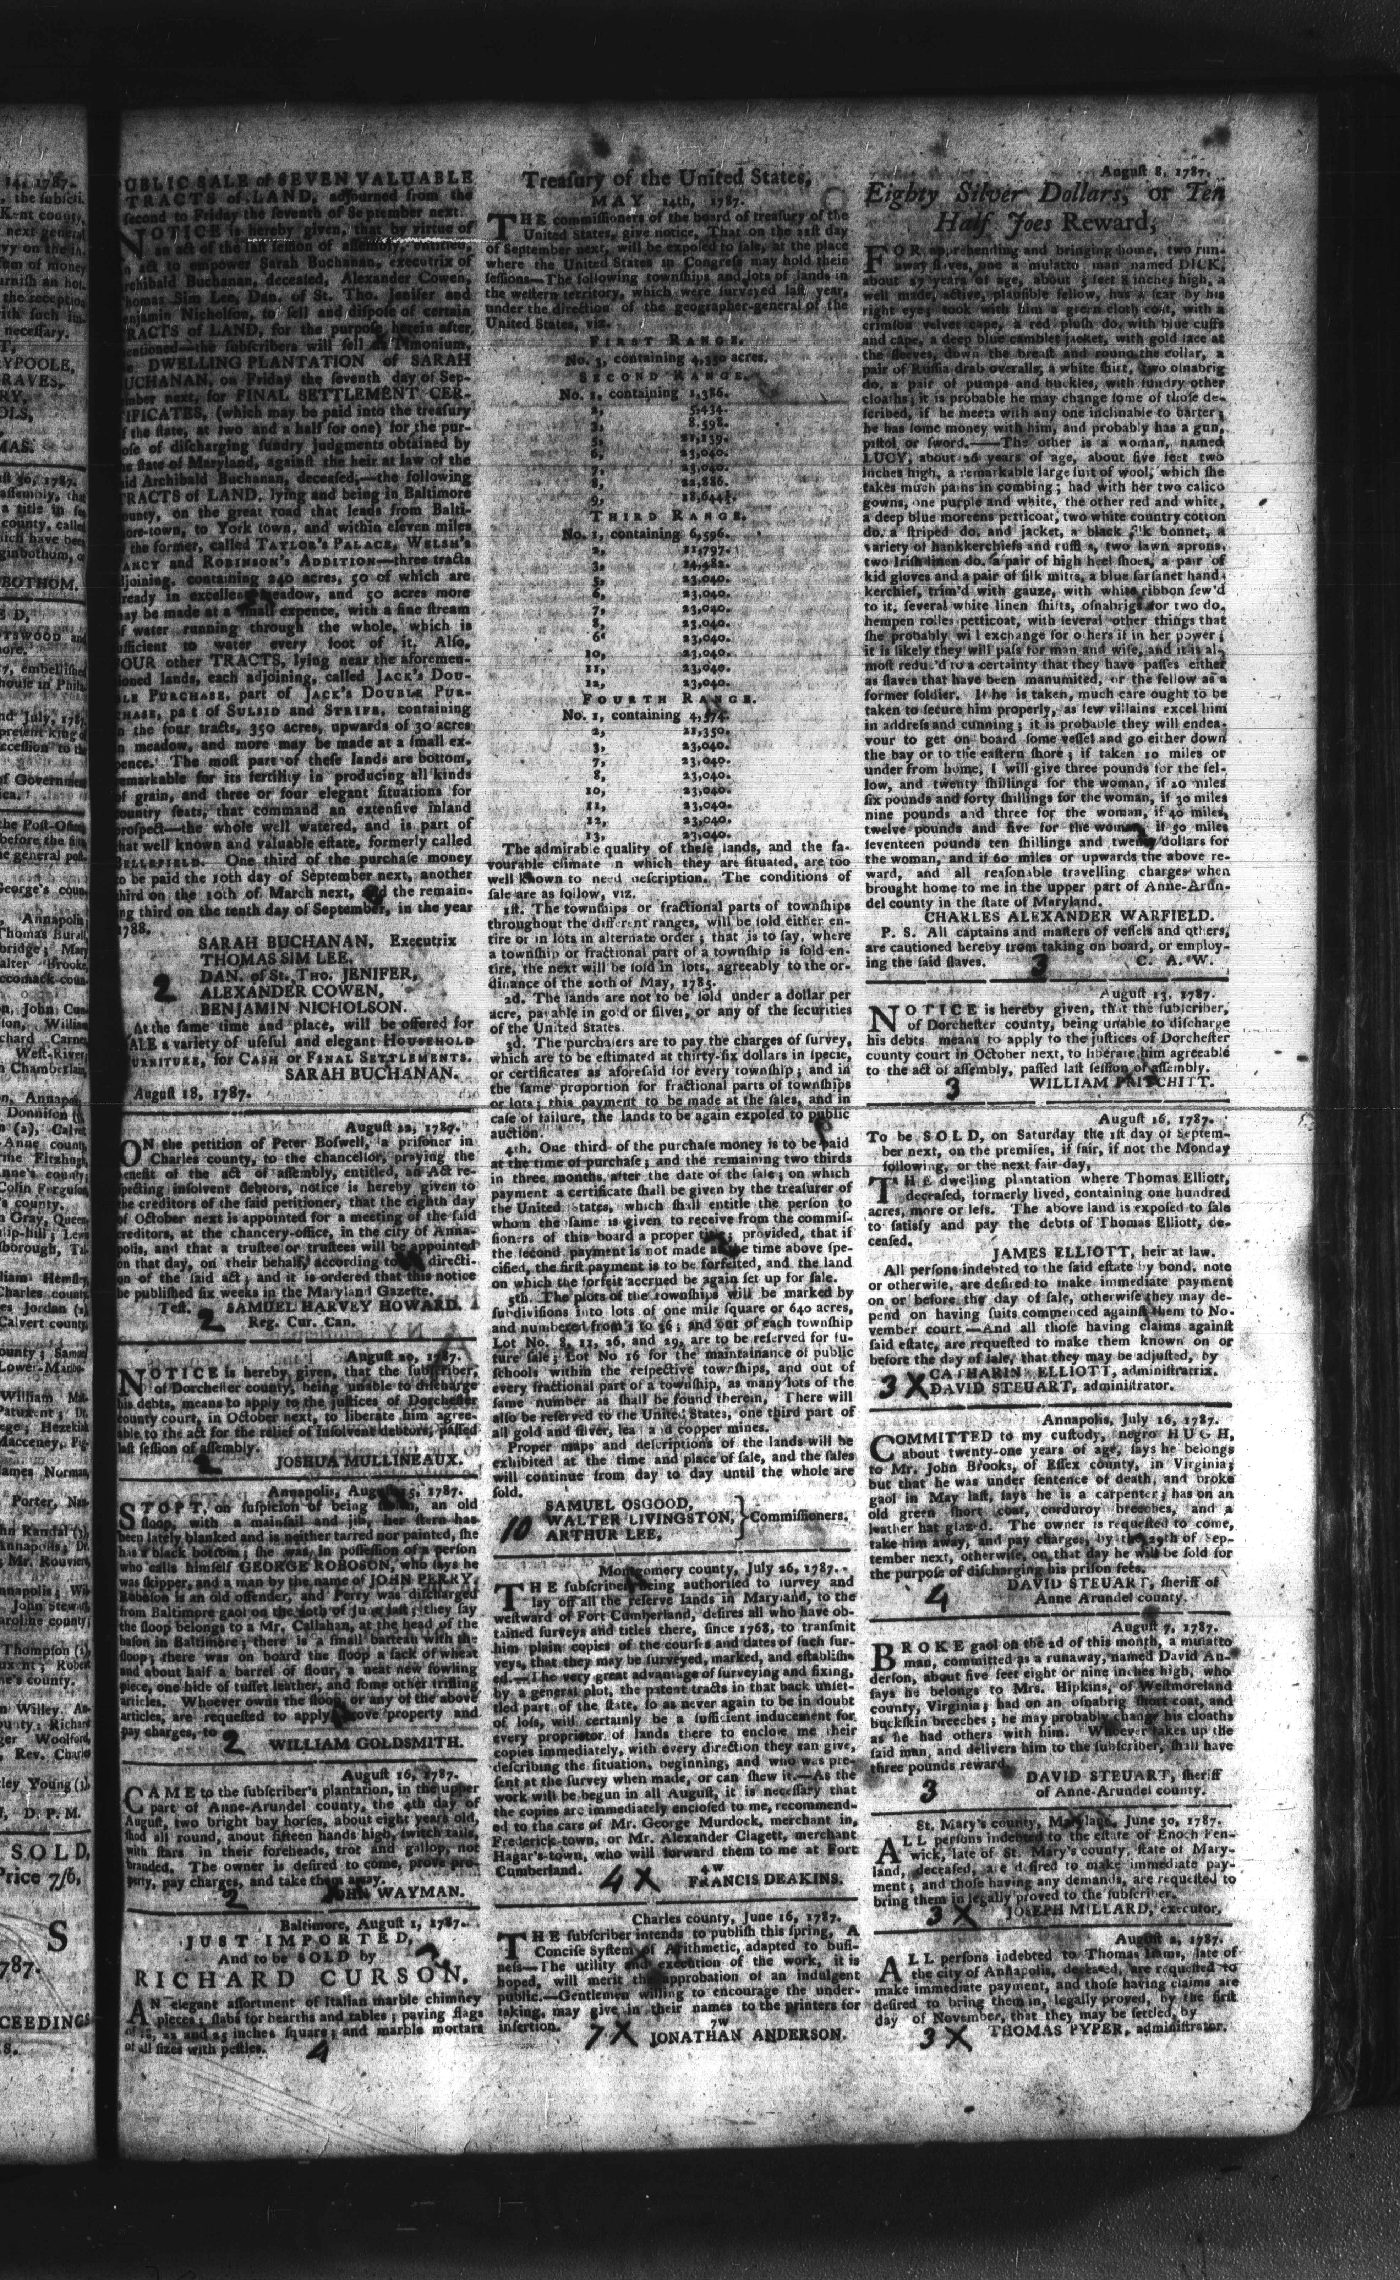 14, 1787.
the subscri-
Kent county,
next general
vy on the in-
sum of money
furnish an hos-
the reception
with such in-
necessary.
T,
YPOOLE,
RAVES,
RY,
OLS,
MAS.
30, 1787.
assembly, tha
a title in
county, called
BOTHOM.
E D,
and
more.
embellished
house in Phila
nd July, 1787
present king of
ccession to the
of Government
ica.
the Post-Office
before the
he general post
George's coun
Annapolis;
bridge; Mary
alter Brooke,
ccomack-coun
John Cun
William
chard Carne
West-River
Chamberlain,
Annapolis
Donnison
Calvert
Anne county
rine Fitzhugh
nne's county;
Colin Ferguson
's county.
Gray, Queen
lip-hill; Lewis
lborough,
liam Hemsley
Charles county
es Jordan (2),
Calvert county
ounty; Samuel
Lower-Marlbo-
William
Patuxent; Dr.
Hezekiah
Macceney,
James Norman,
Porter,
hn Randal (3),
Annapolis; Dr.
Mr. Rouviere
Annapolis;
John Stewart
aroline county;
Thompson (1),
uxent; Robert
ne's county.
Willey, An-
ounty; Richard
ger Woolford
Rev. Charles
tley Young (1),
D. P. M.
S O L D,
Price 7/6,
S
1787.
CEEDINGS
8.
PUBLIC SALE of SEVEN VALUABLE
TRACTS of LAND, adjourned from the
second to Friday the seventh of September next.
NOTICE is hereby given, that by virtue of
an act of the last session of assembly, entitled,
An act to empower Sarah Buchanan, executrix of
Archibald Buchanan, deceased, Alexander Cowen,
Thomas Sim Lee, Dan. of St. Tho. Jenifer and
Benjamin Nicholson, to sell and dispose of certain
TRACTS of LAND, for the purpose herein after
mentioned—the subscribers will sell at Timonium,
the DWELLING PLANTATION of SARAH
BUCHANAN, on Friday the seventh day of Sep-
tember next, for FINAL SETTLEMENT CER-
TIFICATES, (which may be paid into the treasury
of the state, at two and a half for one) for the pur-
pose of discharging sundry judgments obtained by
the state of Maryland, against the heir at law of the
said Archibald Buchanan, deceased,—the following
TRACTS of LAND, lying and being in Baltimore
county, on the great road that leads from Balti-
more-town, to York town, and within eleven miles
of the former, called TAYLOR'S PALACE, WELSH'S
FANCY and ROBINSON'S ADDITION—three tracts
adjoining, containing 240 acres, 50 of which are
already in excellent meadow, and 50 acres more
may be made at a small expence, with a fine stream
of water running through the whole, which is
sufficient to water every foot of it. Also,
FOUR other TRACTS, lying near the aforemen-
tioned lands, each adjoining, called JACK'S DOU-
BLE PURCHASE, part of JACK'S DOUBLE PUR-
CHASE, part of SULSID and STRIFE, containing
in the four tracts, 350 acres, upwards of 30 acres
in meadow, and more may be made at a small ex-
pence. The most part of these lands are bottom,
remarkable for its fertility in producing all kinds
of grain, and three or four elegant situations for
country seats, that command an extensive inland
prospect—the whole well watered, and is part of
that well known and valuable estate, formerly called
BELLEFIELD. One third of the purchase money
to be paid the 10th day of September next, another
third on the 10th of March next, and the remain-
ing third on the tenth day of September, in the year
1788.
SARAH BUCHANAN, Executrix
THOMAS SIM LEE,
DAN. of St. THO. JENIFER,
2
ALEXANDER COWEN,
BENJAMIN NICHOLSON.
At the same time and place, will be offered for
SALE a variety of useful and elegant HOUSEHOLD
FURNITURE, for CASH or FINAL SETTLEMENTS.
SARAH BUCHANAN.
August 18, 1787.
August 22, 1787.
ON the petition of Peter Boswell, a prisoner in
Charles county, to the chancellor, praying the
benefit of the act of assembly, entitled, an Act re-
specting insolvent debtors, notice is hereby given to
the creditors of the said petitioner, that the eighth day
of October next is appointed for a meeting of the said
creditors, at the chancery-office, in the city of Anna-
polis, and that a trustee or trustees will be appointed
on that day, on their behalf, according to the directi-
on of the said act; and it is ordered that this notice
be published six weeks in the Maryland Gazette.
Test. SAMUEL HARVEY HOWARD,
2 Reg. Cur. Can.
August 20, 1787.
NOTICE is hereby given, that the subscriber,
of Dorchester county, being unable to discharge
his debts, means to apply to the justices of Dorchester
county court, in October next, to liberate him agree-
able to the act for the relief of insolvent debtors, passed
last session of assembly.
2 JOSHUA MULLINEAUX.
Annapolis, August 5, 1787.
STOPT, on suspicion of being stolen, an old
sloop, with a mainsail and jib, her stern has
been lately blanked and is neither tarred nor painted, she
has a black bottom; she was in possession of a person
who calls himself GEORGE ROBOSON, who says he
was skipper, and a man by the name of JOHN PERRY.
Roboson is an old offender, and Perry was discharged
from Baltimore gaol on the 20th of June last; they say
the sloop belongs to a Mr. Callahan, at the head of the
bason in Baltimore; there is a small batteau with the
sloop; there was on board the sloop a sack of wheat
and about half a barrel of flour, a neat new fowling
piece, one hide of tusset leather, and some other trifling
articles. Whoever owns the sloop, or any of the above
articles, are requested to apply, prove property and
pay charges, to
2 WILLIAM GOLDSMITH.
August 16, 1787.
CAME to the subscriber's plantation, in the upper
part of Anne-Arundel county, the 4th day of
August, two bright bay horses, about eight years old,
shod all round, about fifteen hands high, switch tails,
with stars in their foreheads, trot and gallop, not
branded. The owner is desired to come, prove pro-
perty, pay charges, and take them away.
2 JOHN WAYMAN.
Baltimore, August 1, 1787.
JUST IMPORTED,
And to be SOLD by
RICHARD CURSON,
AN elegant assortment of Italian marble chimney
pieces; slabs for hearths and tables; paving flags
of 18, 22 and 25 inches square; and marble mortars
of all sizes with pestles. 4
Treasury of the United States,
MAY 14th, 1787.
THE commissioners of the board of treasury of the
United States, give notice, That on the 21st day
of September next, will be exposed to sale, at the place
where the United States in Congress may hold their
sessions—The following townships and lots of lands in
the western territory, which were surveyed last year,
under the direction of the geographer-general of the
United States, viz.
FIRST RANGE.
No. 3, containing 4,350 acres.
SECOND RANGE.
No. 1, containing 1,386.
2, 5,434.
3, 8,598.
5, 21,239.
6, 23,040.
7, 23,040.
8, 22,886.
9, 18,644½.
THIRD RANGE.
No. 1, containing 6,596.
2, 21,797.
3, 24,482.
5, 23,040.
6, 23,040.
7, 23,040.
8, 23,040.
6, 23,040.
10, 23,040.
11, 23,040.
12, 23,040.
FOURTH RANGE.
No. 1, containing 4,574.
2, 21,350.
3, 23,040.
7, 23,040.
8, 23,040.
10, 23,040.
11, 23,040.
12, 23,040.
13, 23,040.
The admirable quality of these lands, and the fa-
vourable climate in which they are situated, are too
well known to need description. The conditions of
sale are as follow, viz.
1st. The townships or fractional parts of townships
throughout the different ranges, will be sold either en-
tire or in lots in alternate order; that is to say, where
a township or fractional part of a township is sold en-
tire, the next will be sold in lots, agreeably to the or-
dinance of the 20th of May, 1785.
2d. The lands are not to be sold under a dollar per
acre, payable in gold or silver, or any of the securities
of the United States.
3d. The purchasers are to pay the charges of survey,
which are to be estimated at thirty-six dollars in specie,
or certificates as aforesaid for every township; and in
the same proportion for fractional parts of townships
or lots; this payment to be made at the sales, and in
case of failure, the lands to be again exposed to public
auction.
4th. One third of the purchase money is to be paid
at the time of purchase; and the remaining two thirds
in three months, after the date of the sale; on which
payment a certificate shall be given by the treasurer of
the United States, which shall entitle the person to
whom the same is given to receive from the commis-
sioners of this board a proper title; provided, that if
the second payment is not made at the time above spe-
cified, the first payment is to be forfeited, and the land
on which the forfeit accrued be again set up for sale.
5th. The plots of the townships will be marked by
subdivisions into lots of one mile square or 640 acres,
and numbered from 1 to 36; and out of each township
Lot No. 8, 11, 26, and 29, are to be reserved for fu-
ture sale; Lot No 16 for the maintainance of public
schools within the respective townships, and out of
every fractional part of a township, as many lots of the
same number as shall be found therein, There will
also be reserved to the United States, one third part of
all gold and silver, lead and copper mines.
Proper maps and descriptions of the lands will be
exhibited at the time and place of sale, and the sales
will continue from day to day until the whole are
sold.
SAMUEL OSGOOD,
10 WALTER LIVINGSTON, } Commissioners.
ARTHUR LEE,
Montgomery county, July 26, 1787.
THE subscriber being authorised to survey and
lay off all the reserve lands in Maryland, to the
westward of Fort Cumberland, desires all who have ob-
tained surveys and titles there, since 1768, to transmit
him plain copies of the courses and dates of such sur-
veys, that they may be surveyed, marked, and establish-
ed.—The very great advantage of surveying and fixing,
by a general plot, the patent tracts in that back unset-
tled part of the state, so as never again to be in doubt
of loss, will certainly be a sufficient inducement for
every proprietor of lands there to enclose me their
copies immediately, with every direction they can give,
describing the situation, beginning, and who was pre-
sent at the survey when made, or can shew it.—As the
work will be begun in all August, it is necessary that
the copies are immediately enclosed to me, recommend-
ed to the care of Mr. George Murdock, merchant in
Frederick-town, or Mr. Alexander Clagett, merchant
Hagar's-town, who will forward them to me at Fort
Cumberland. 4w
4 X FRANCIS DEAKINS.
Charles county, June 16, 1787.
THE subscriber intends to publish this spring, A
Concise System of Arithmetic, adapted to busi-
ness—The utility and execution of the work, it is
hoped, will merit the approbation of an indulgent
public.—Gentlemen willing to encourage the under-
taking, may give in their names to the printers for
insertion. 7w
7 X JONATHAN ANDERSON.
August 8, 1787.
Eighty Silver Dollars, or Ten
Half Joes Reward,
FOR apprehending and bringing home, two run-
away slaves, one a mulatto man named DICK,
about 27 years of age, about 5 feet 8 inches high, a
well made, active, plausible fellow, has a scar by his
right eye; took with him a green cloth coat, with a
crimson velvet cape, a red plush do. with blue cuffs
and cape, a deep blue camblet jacket, with gold lace at
the sleeves, down the breast and round the collar, a
pair of Russia drab overalls, a white shirt, two osnabrig
do. a pair of pumps and buckles, with sundry other
cloaths; it is probable he may change some of those de-
scribed, if he meets with any one inclinable to barter;
he has some money with him, and probably has a gun,
pistol or sword.——The other is a woman, named
LUCY, about 26 years of age, about five feet two
inches high, a remarkable large suit of wool, which she
takes much pains in combing; had with her two calico
gowns, one purple and white, the other red and white,
a deep blue moreens petticoat, two white country cotton
do. a striped do. and jacket, a black silk bonnet, a
variety of hankkerchiefs and ruffles, two lawn aprons,
two Irish linen do. a pair of high heel shoes, a pair of
kid gloves and a pair of silk mitts, a blue sarsanet hand-
kerchief, trim'd with gauze, with white ribbon sew'd
to it, several white linen shifts, osnabrigs for two do.
hempen rolles petticoat, with several other things that
she probably will exchange for others if in her power;
it is likely they will pass for man and wife, and it is al-
most reduc'd to a certainty that they have passes either
as slaves that have been manumited, or the fellow as a
former soldier. If he is taken, much care ought to be
taken to secure him properly, as few villains excel him
in address and cunning; it is probable they will endea-
vour to get on board some vessel and go either down
the bay or to the eastern shore; if taken 10 miles or
under from home, I will give three pounds for the fel-
low, and twenty shillings for the woman, if 20 miles
six pounds and forty shillings for the woman, if 30 miles
nine pounds and three for the woman, if 40 miles,
twelve pounds and five for the woman, if 50 miles
seventeen pounds ten shillings and twenty dollars for
the woman, and if 60 miles or upwards the above re-
ward, and all reasonable travelling charges when
brought home to me in the upper part of Anne-Arun-
del county in the state of Maryland.
CHARLES ALEXANDER WARFIELD.
P. S. All captains and masters of vessels and others,
are cautioned hereby from taking on board, or employ-
ing the said slaves. 3 C. A. W.
August 13, 1787.
NOTICE is hereby given, that the subscriber,
of Dorchester county, being unable to discharge
his debts means to apply to the justices of Dorchester
county court in October next, to liberate him agreeable
to the act of assembly, passed last session of assembly.
3 WILLIAM PRITCHITT.
August 16, 1787.
To be SOLD, on Saturday the 1st day of Septem-
ber next, on the premises, if fair, if not the Monday
following, or the next fair day,
THE dwelling plantation where Thomas Elliott,
deceased, formerly lived, containing one hundred
acres, more or less. The above land is exposed to sale
to satisfy and pay the debts of Thomas Elliott, de-
ceased.
JAMES ELLIOTT, heir at law.
All persons indebted to the said estate by bond, note
or otherwise, are desired to make immediate payment
on or before the day of sale, otherwise they may de-
pend on having suits commenced against them to No-
vember court.—And all those having claims against
said estate, are requested to make them known on or
before the day of sale, that they may be adjusted, by
CATHARINE ELLIOTT, administratrix.
3 X DAVID STEUART, administrator.
Annapolis, July 16, 1787.
COMMITTED to my custody, negro HUGH,
about twenty-one years of age, says he belongs
to Mr. John Brooks, of Essex county, in Virginia;
but that he was under sentence of death, and broke
gaol in May last, says he is a carpenter; has on an
old green short coat, corduroy breeches, and a
leather hat glazed. The owner is requested to come,
take him away, and pay charges, by the 29th of Sep-
tember next, otherwise, on that day he will be sold for
the purpose of discharging his prison fees.
4 DAVID STEUART, sheriff of
Anne Arundel county.
August 7, 1787.
BROKE gaol on the 2d of this month, a mulatto
man, committed as a runaway, named David An-
derson, about five feet eight or nine inches high, who
says he belongs to Mrs. Hipkins, of Westmoreland
county, Virginia; had on an osnabrig short coat, and
buckskin breeches; he may probably change his cloaths
as he had others with him. Whoever takes up the
said man, and delivers him to the subscriber, shall have
three pounds reward.
3 DAVID STEUART, sheriff
of Anne-Arundel county.
St. Mary's county, Maryland, June 30, 1787.
ALL persons indebted to the estate of Enoch Fen-
wick, late of St. Mary's county, state of Mary-
land, deceased, are desired to make immediate pay-
ment; and those having any demands, are requested to
bring them in legally proved to the subscriber.
3 X JOSEPH MILLARD, executor.
August 2, 1787.
ALL persons indebted to Thomas Hams, late of
the city of Annapolis, deceased, are requested to
make immediate payment, and those having claims are
desired to bring them in, legally proved, by the first
day of November, that they may be settled, by
3 X THOMAS PYPER, administrator.